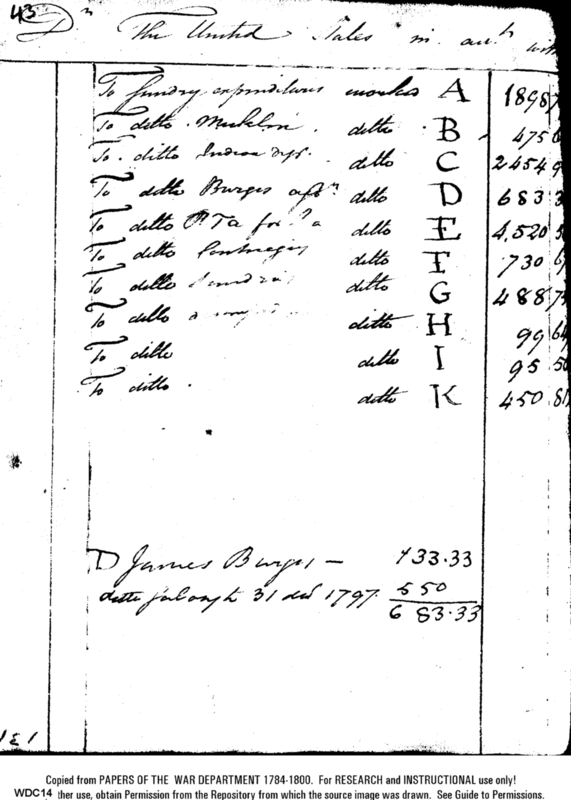 43
Dr The United States in acct with
To Sundry expenditures marked A 1898 7
To ditto ditto B 475 6
To ditto Indian dept. ditto C 2454 9
To ditto Burges ditto D 683 3
To ditto ditto E 4,520 5
To ditto Contingcs ditto F 730 6
To ditto Sundries ditto G 488 7
To ditto ditto H 99 64
To ditto ditto I 95 50
To ditto ditto K 450 81
D James Burges — 133.33
ditto 31 dec 1797. 550
683.33
131
Copied from PAPERS OF THE WAR DEPARTMENT 1784-1800. For RESEARCH and INSTRUCTIONAL use only!
WDC14 ther use, obtain Permission from the Repository from which the source image was drawn. See Guide to Permissions.